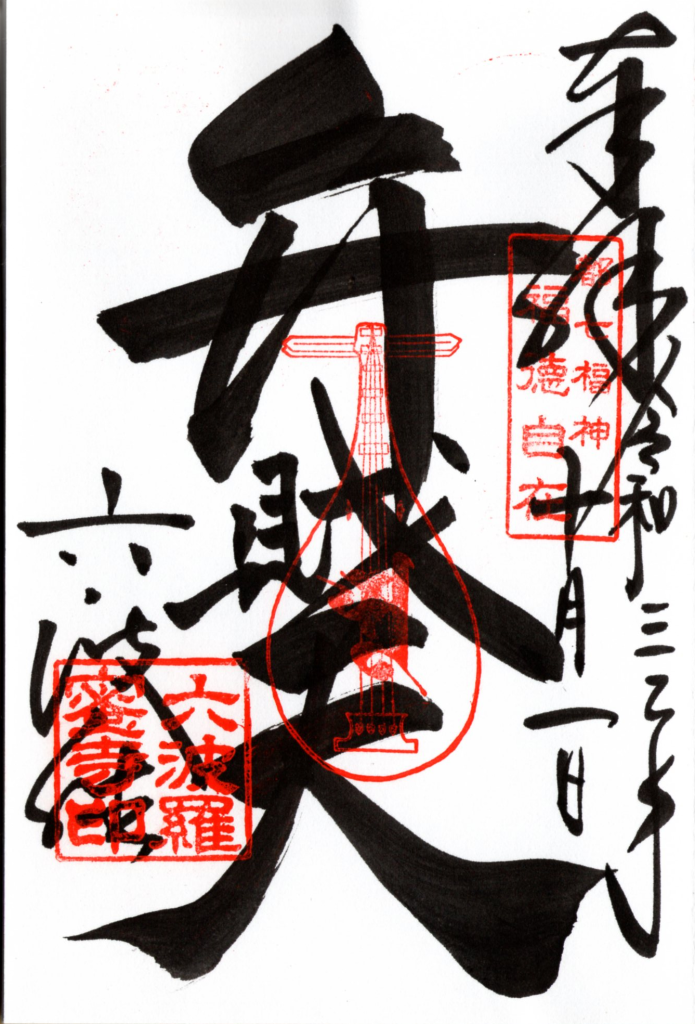 奉拝
令和三年
十月一日
都七福神
福徳自在
弁財天
六波
六波羅
蜜寺印